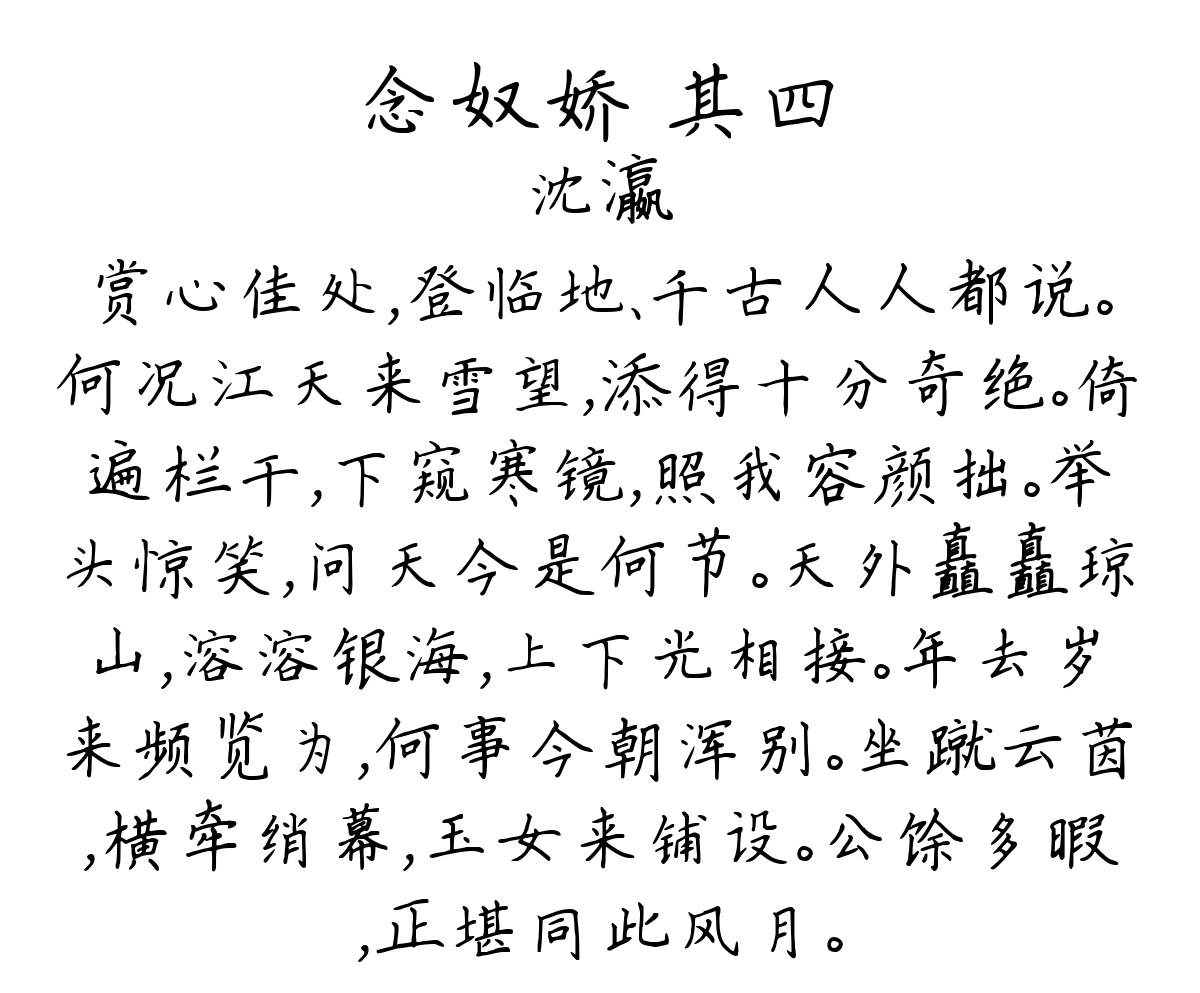 念奴娇 其四
沈瀛
赏心佳处,登临地、千古人人都说。
何况江天来雪望,添得十分奇绝。倚
遍栏干,下窥寒镜,照我容颜拙。举
头惊笑,问天今是何节。天外矗矗琼
山,溶溶银海,上下光相接。年去岁
来频览为,何事今朝浑别。坐蹴云茵
,横牵绡幕,玉女来铺设。公馀多暇
,正堪同此风月。